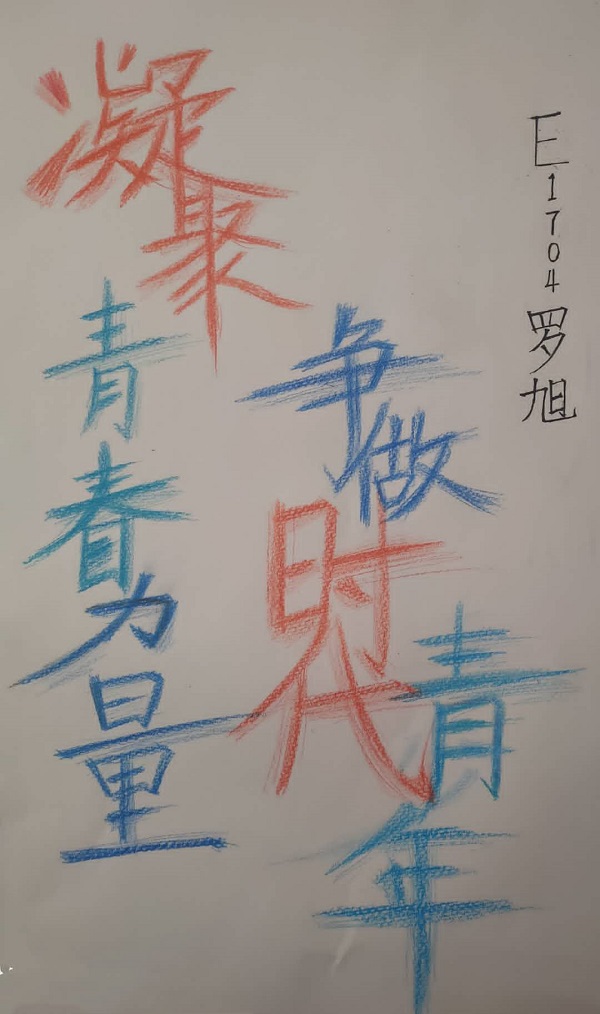 凝聚
青春力量
争做
时代
青年
E1704罗旭